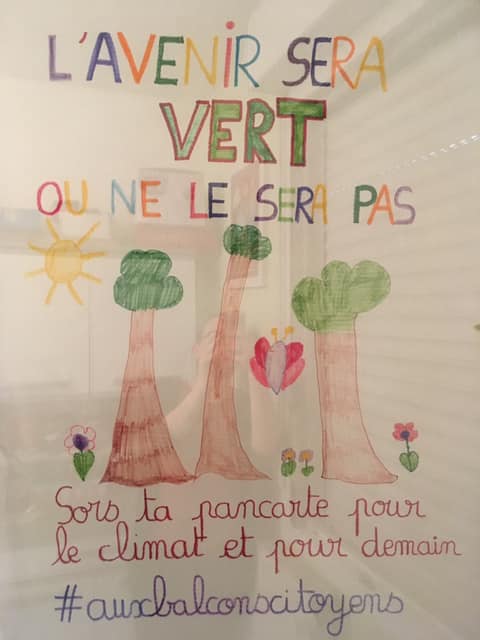 L'AVENIR SERA
VERT
OU NE LE SERA PAS
Sors ta pancarte pour
le climat et pour demain
#auxbalconscitoyens